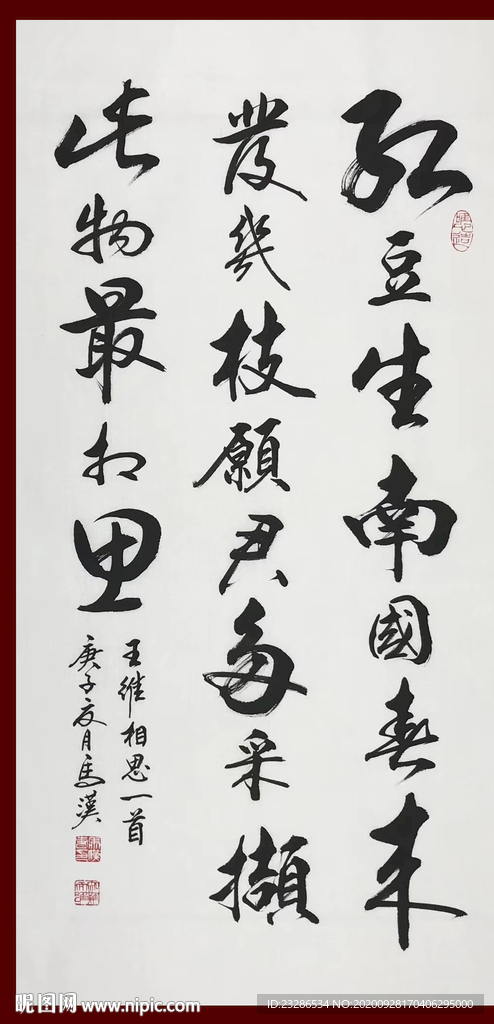 紅豆生南國春来
發幾枝願君多采擷
此物最相思
王維相思一首
庚子夏月馬漢
昵图网 www.nipic.com
ID:23286534 NO:20200928170406295000